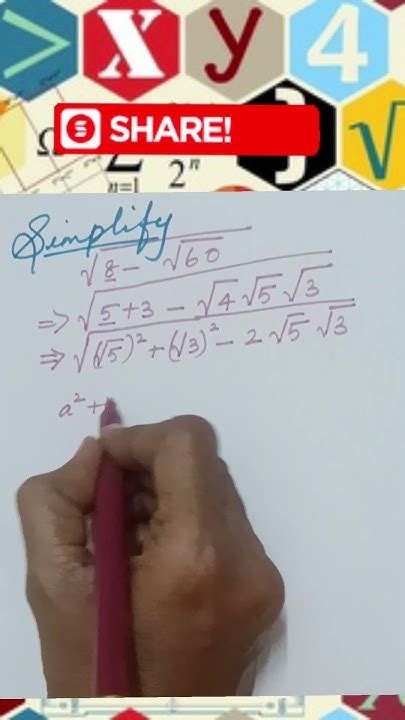 > x y 4
Ω SHARE! } √
Σ n=1 2ⁿ
Simplify
√8 - √60
=> √5+3 - √4 √5 √3
=> √(√5)² + (√3)² - 2 √5 √3
a² +